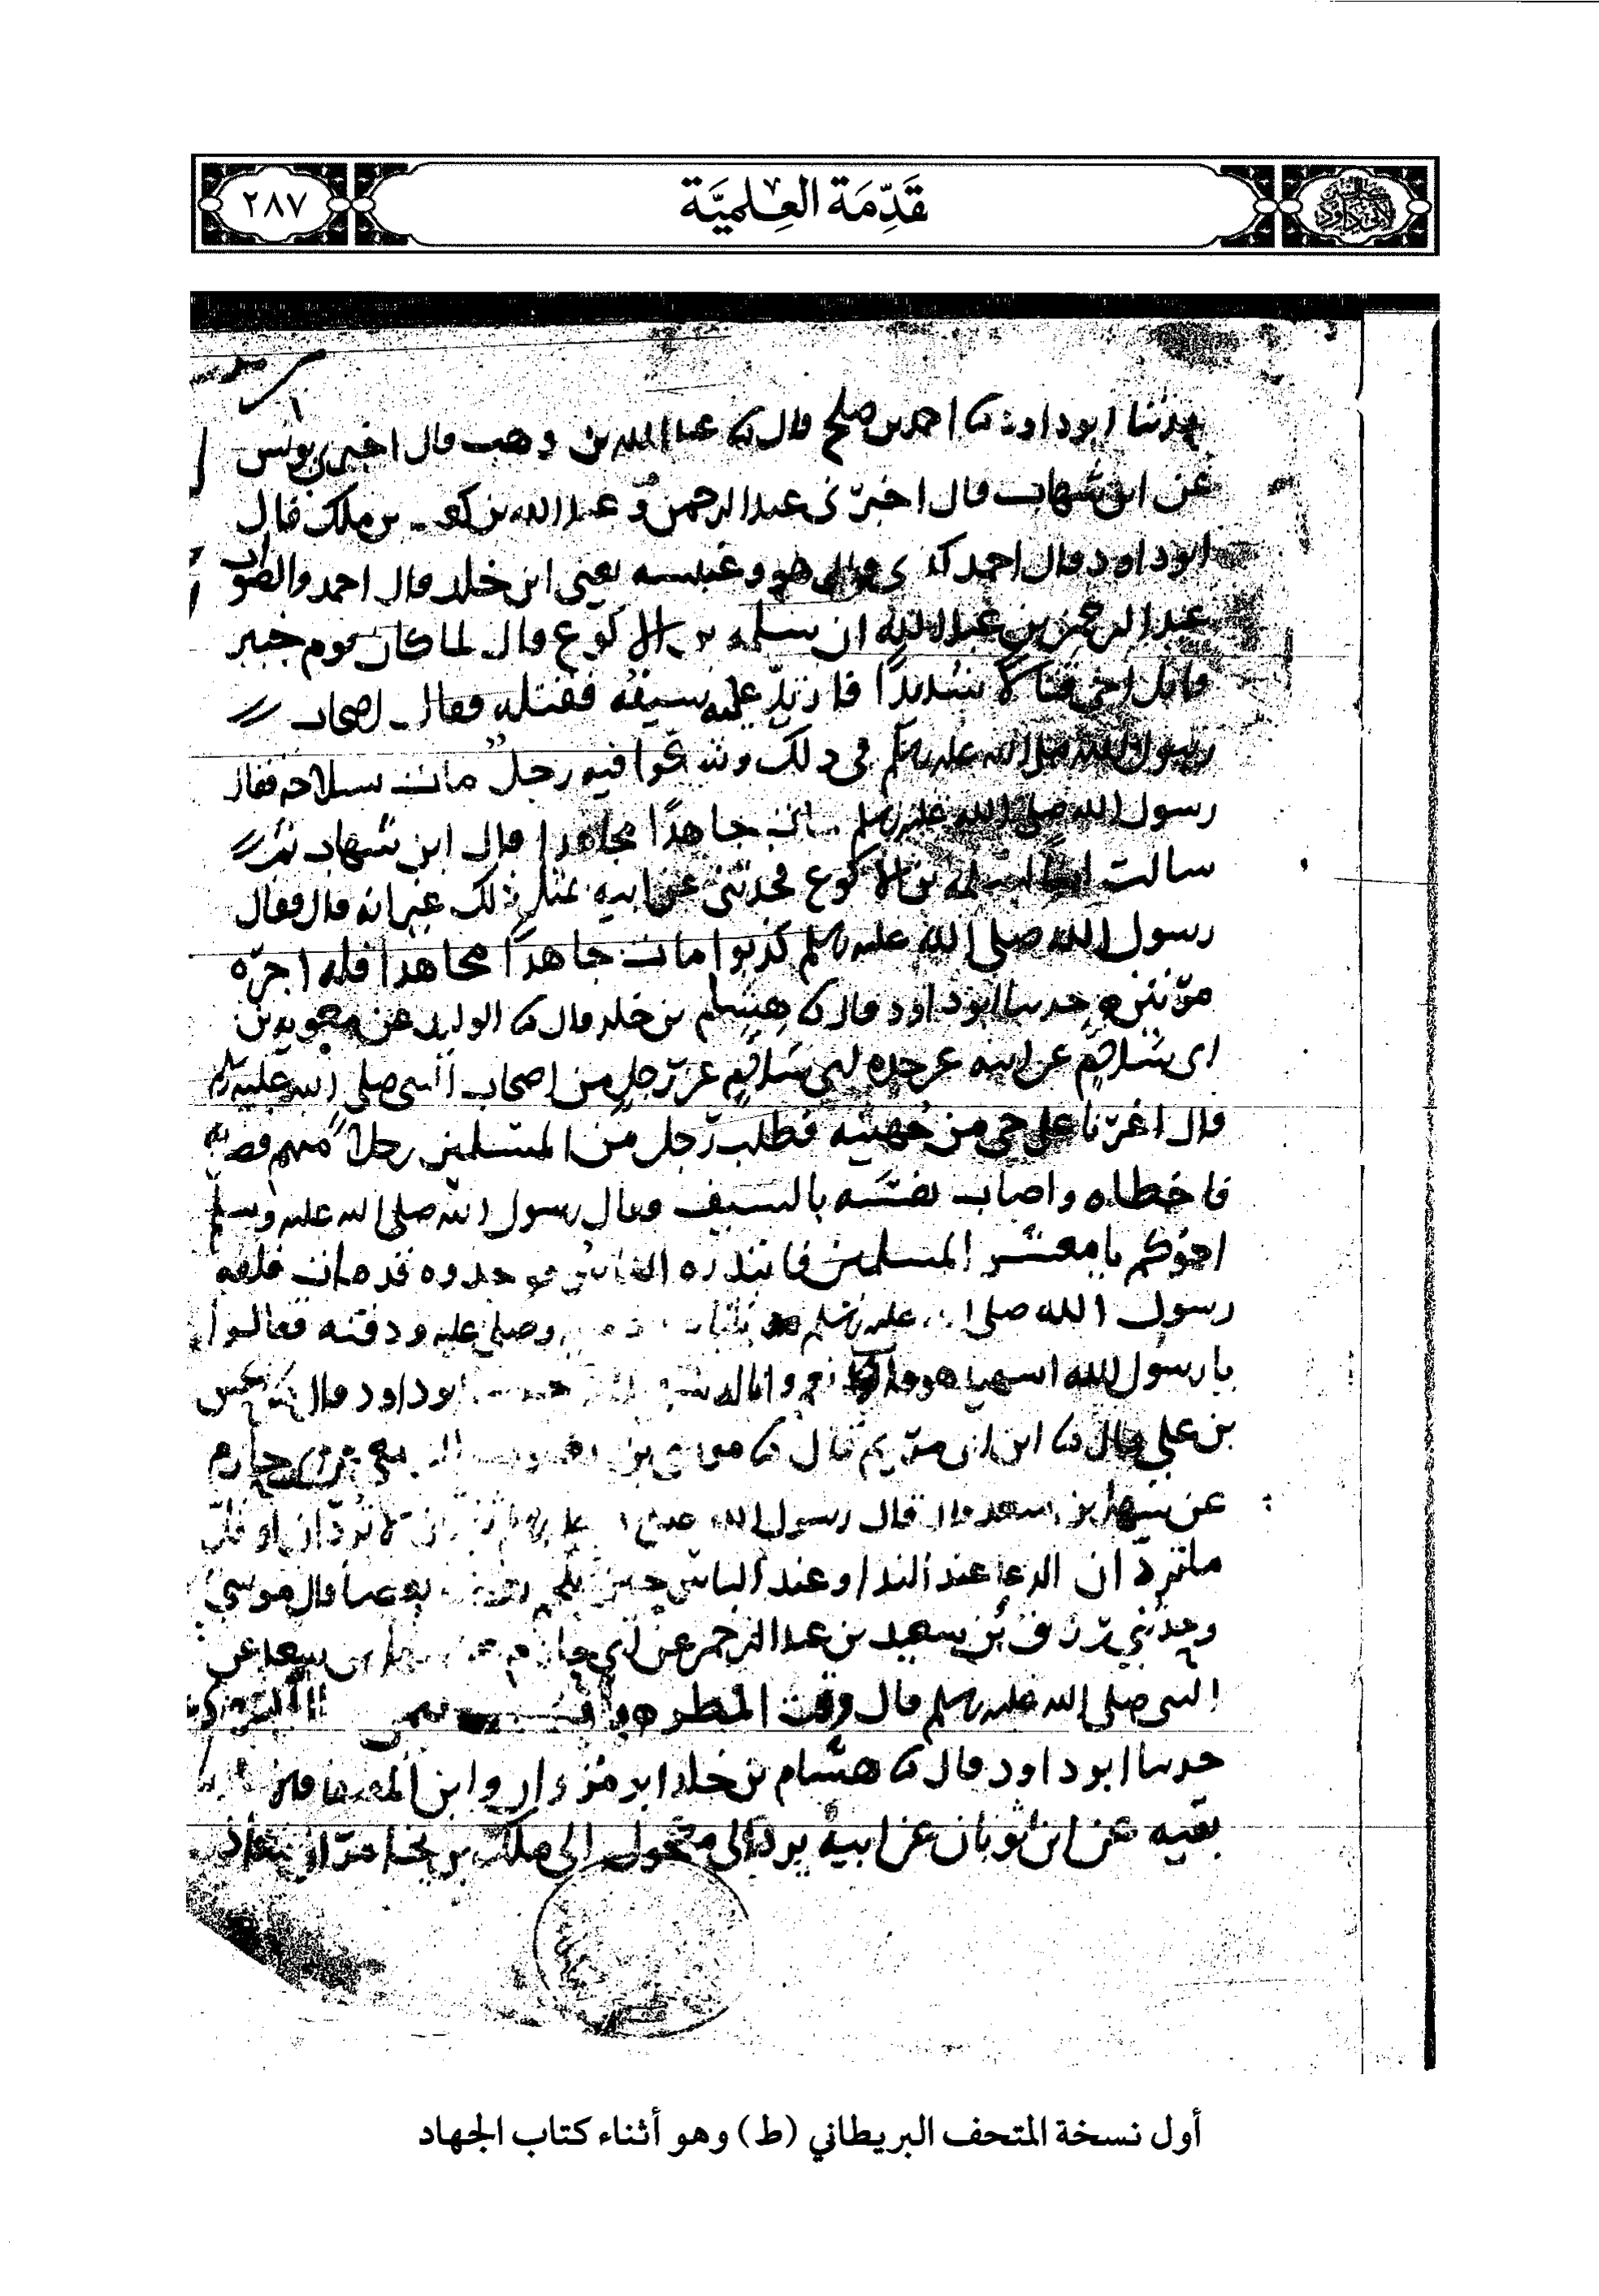 قَدِّمَة العِلميَّة
٢٨٧
حدثنا ابو داود نا احمد بن صلح قال نا عبد الله بن وهب قال اخبرني يونس
عن ابن شهاب قال اخبرني عبد الرحمن و عبد الله بن كعب بن ملك قال
ابو داود قال احمد كذى قال هو وعنبسه يعني ابن خلد قال احمد والصواب
عبد الرحمن بن عبد الله ان سلمه بن الاكوع قال لما كان يوم خيبر
قاتل اخي قتالا شديدًا فارتدّ عليه سيفه فقتله فقال اصحاب
رسول الله صلى الله عليه وسلم في ذلك وشكوا فيه رجل مات بسلاحه فقال
رسول الله صلى الله عليه وسلم مات جاهدًا مجاهدا قال ابن شهاب ثم
سالت ابنًا لسلمه بن الاكوع فحدثني عن ابيه بمثل ذلك غير انه قال فقال
رسول الله صلى الله عليه وسلم كذبوا مات جاهدًا مجاهدا فله اجره
مرّتين حدثنا ابو داود قال نا هشام بن خلد قال نا الوليد عن معويه بن
ابي سلام عن ابيه عن جده ابي سلام عن رجل من اصحاب النبي صلى الله عليه وسلم
قال اغرنا على حي من جهينه فطلب رجل من المسلمين رجلاً منهم فضربه
فاخطاه واصاب نفسه بالسيف فقال رسول الله صلى الله عليه وسلم
اخوكم يا معشر المسلمين فابتدره الناس فوجدوه قد مات فلفه
رسول الله صلى عليه وسلم بثيابه وصلى عليه ودفنه فقالوا
يا رسول الله اشهيد هو قال نعم وانا له ابو داود قال نا الحسن
بن علي قال نا ابن ابي مريم قال نا موسى بن حازم
عن سهل بن سعد قال قال رسول الله لا تردّان او قلّ
ما تردّان الدعا عند الندا وعند الباس حين يلحم بعضه بعضا قال موسى
وحدثني رزق بن سعيد بن عبد الرحمن عن ابي حازم عن سهل بن سعد عن
النبي صلى الله عليه وسلم قال وقت المطر
حدثنا ابو داود قال نا هشام بن خلد ابو مروان وابن المصفا قالا
بقيه عن ابن ثوبان عن ابيه يرد الى مكحول الى ملك بن يخامر ان معاذ
أول نسخة المتحف البريطاني (ط) وهو أثناء كتاب الجهاد